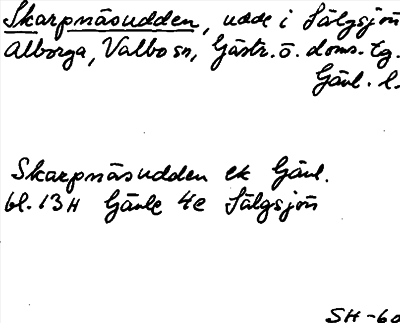 Skarpnäsudden, udde i Sälgsjön
Alborga, Valbo sn, Gästr. ö. doms. tg.
Gävl. l.
Skarpnäsudden ek Gävl.
bl. 13H Gävle 4e Sälgsjön
SH-60